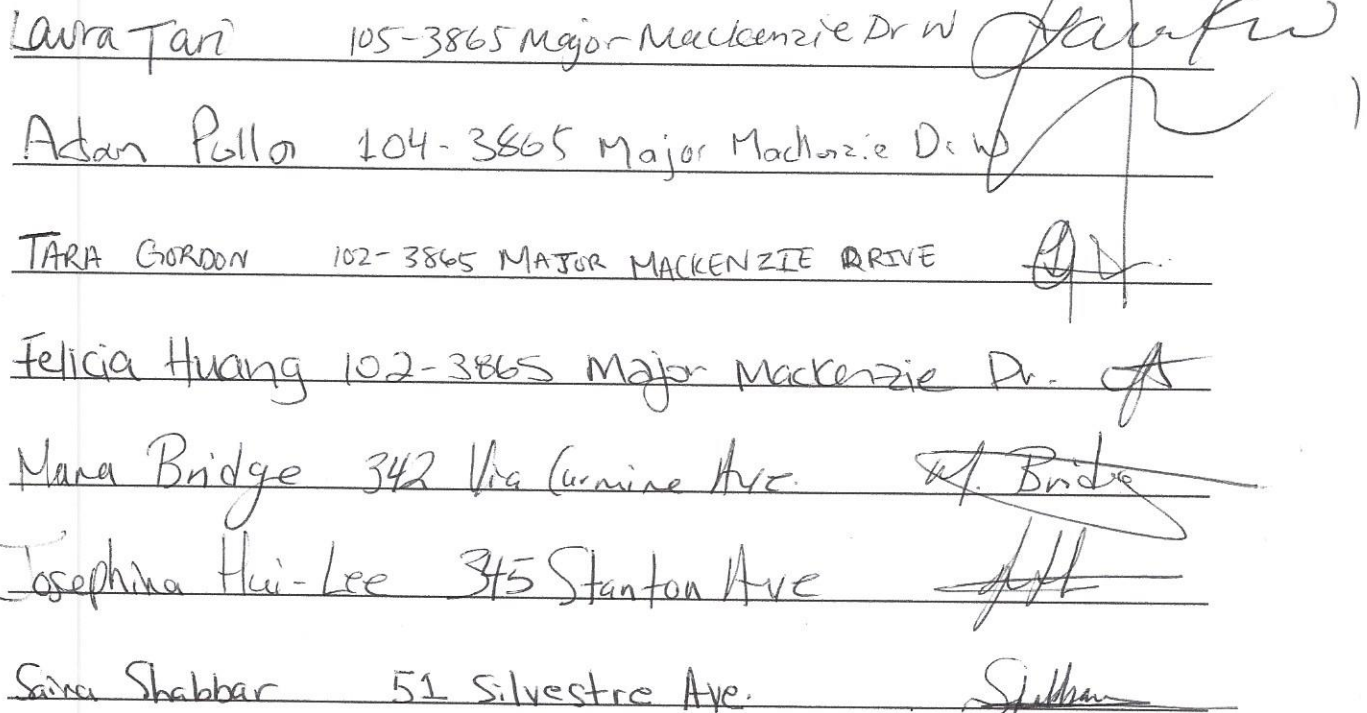 Laura Tari 105-3865 Major Mackenzie Dr W
Adan 104-3865 Major Mackenzie Dr W
TARA GORDON 102-3865 MAJOR MACKENZIE DRIVE
Felicia Huang 102-3865 Major Mackenzie Dr.
Bridge 342 Via Carmine Ave. M. Bridge
Josephina Hui-Lee 345 Stanton Ave
Saira Shabbar 51 Silvestre Ave.